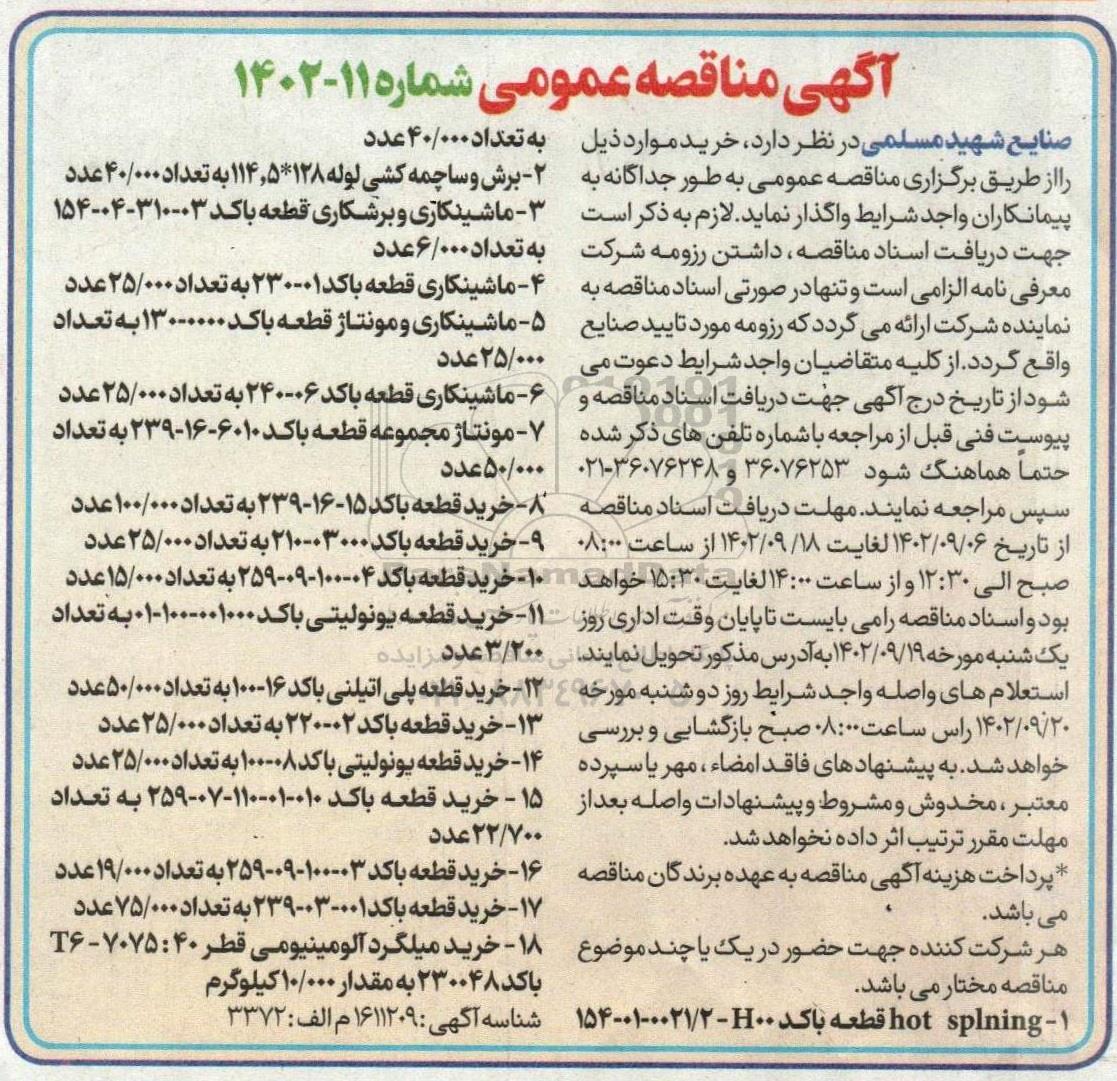 آگهی مناقصه عمومی شماره ۱۱-۱۴۰۲
صنایع شهید مسلمی در نظر دارد، خرید موارد ذیل
را از طریق برگزاری مناقصه عمومی به طور جداگانه به
پیمانکاران واجد شرایط واگذار نماید. لازم به ذکر است
جهت دریافت اسناد مناقصه، داشتن رزومه شرکت
معرفی نامه الزامی است و تنها در صورتی اسناد مناقصه به
نماینده شرکت ارائه می گردد که رزومه مورد تایید صنایع
واقع گردد. از کلیه متقاضیان واجد شرایط دعوت می
شود از تاریخ درج آگهی جهت دریافت اسناد مناقصه و
پیوست فنی قبل از مراجعه با شماره تلفن های ذکر شده
حتماً هماهنگ شود ۳۶۰۷۶۲۵۳ و ۳۶۰۷۶۲۴۸-۰۲۱
سپس مراجعه نمایند. مهلت دریافت اسناد مناقصه
از تاریخ ۱۴۰۲/۰۹/۰۶ لغایت ۱۴۰۲/۰۹/۱۸ از ساعت ۰۸:۰۰
صبح الی ۱۲:۳۰ و از ساعت ۱۴:۰۰ لغایت ۱۵:۳۰ خواهد
بود و اسناد مناقصه را می بایست تا پایان وقت اداری روز
یک شنبه مورخه ۱۴۰۲/۰۹/۱۹ به آدرس مذکور تحویل نمایند.
استعلام های واصله واجد شرایط روز دوشنبه مورخه
۱۴۰۲/۰۹/۲۰ راس ساعت ۰۸:۰۰ صبح بازگشایی و بررسی
خواهد شد. به پیشنهادهای فاقد امضاء، مهر یا سپرده
معتبر، مخدوش و مشروط و پیشنهادات واصله بعد از
مهلت مقرر ترتیب اثر داده نخواهد شد.
*پرداخت هزینه آگهی مناقصه به عهده برندگان مناقصه
می باشد.
هر شرکت کننده جهت حضور در یک یا چند موضوع
مناقصه مختار می باشد.
۱- hot splning قطعه باکد H۰۰ - ۱۵۴-۰۱-۰۰۲۱/۲
به تعداد ۴۰/۰۰۰ عدد
۲- برش و ساچمه کشی لوله ۱۲۸*۱۱۴,۵ به تعداد ۴۰/۰۰۰ عدد
۳- ماشینکاری و برشکاری قطعه باکد ۰۳-۳۱۰-۰۴-۱۵۴
به تعداد ۶/۰۰۰ عدد
۴- ماشینکاری قطعه باکد ۰۱-۲۳۰ به تعداد ۲۵/۰۰۰ عدد
۵- ماشینکاری و مونتاژ قطعه باکد ۰۰۰۰-۱۳۰ به تعداد
۲۵/۰۰۰ عدد
۶- ماشینکاری قطعه باکد ۰۶-۲۴۰ به تعداد ۲۵/۰۰۰ عدد
۷- مونتاژ مجموعه قطعه باکد ۶۰۱۰-۱۶-۲۳۹ به تعداد
۵۰/۰۰۰ عدد
۸- خرید قطعه باکد ۱۵-۱۶-۲۳۹ به تعداد ۱۰۰/۰۰۰ عدد
۹- خرید قطعه باکد ۰۳۰۰۰-۲۱۰ به تعداد ۲۵/۰۰۰ عدد
۱۰- خرید قطعه باکد ۰۴-۱۰۰-۰۹-۲۵۹ به تعداد ۱۵/۰۰۰ عدد
۱۱- خرید قطعه یونولیتی باکد ۰۰۱۰۰۰-۱۰۰-۰۱ به تعداد
۳/۲۰۰ عدد
۱۲- خرید قطعه پلی اتیلنی باکد ۱۶-۱۰۰ به تعداد ۵۰/۰۰۰ عدد
۱۳- خرید قطعه باکد ۰۲-۲۲۰ به تعداد ۲۵/۰۰۰ عدد
۱۴- خرید قطعه یونولیتی باکد ۰۸-۱۰۰ به تعداد ۲۵/۰۰۰ عدد
۱۵- خرید قطعه باکد ۰۱۰-۰۱-۱۱۰-۰۷-۲۵۹ به تعداد
۲۲/۷۰۰ عدد
۱۶- خرید قطعه باکد ۰۳-۱۰۰-۰۹-۲۵۹ به تعداد ۱۹/۰۰۰ عدد
۱۷- خرید قطعه باکد ۰۰۱-۰۳-۲۳۹ به تعداد ۷۵/۰۰۰ عدد
۱۸- خرید میلگرد آلومینیومی قطر ۴۰ : ۷۰۷۵ - T۶
باکد ۲۳۰۰۴۸ به مقدار ۱۰/۰۰۰ کیلوگرم
شناسه آگهی: ۱۶۱۱۲۰۹ م الف: ۳۳۷۲